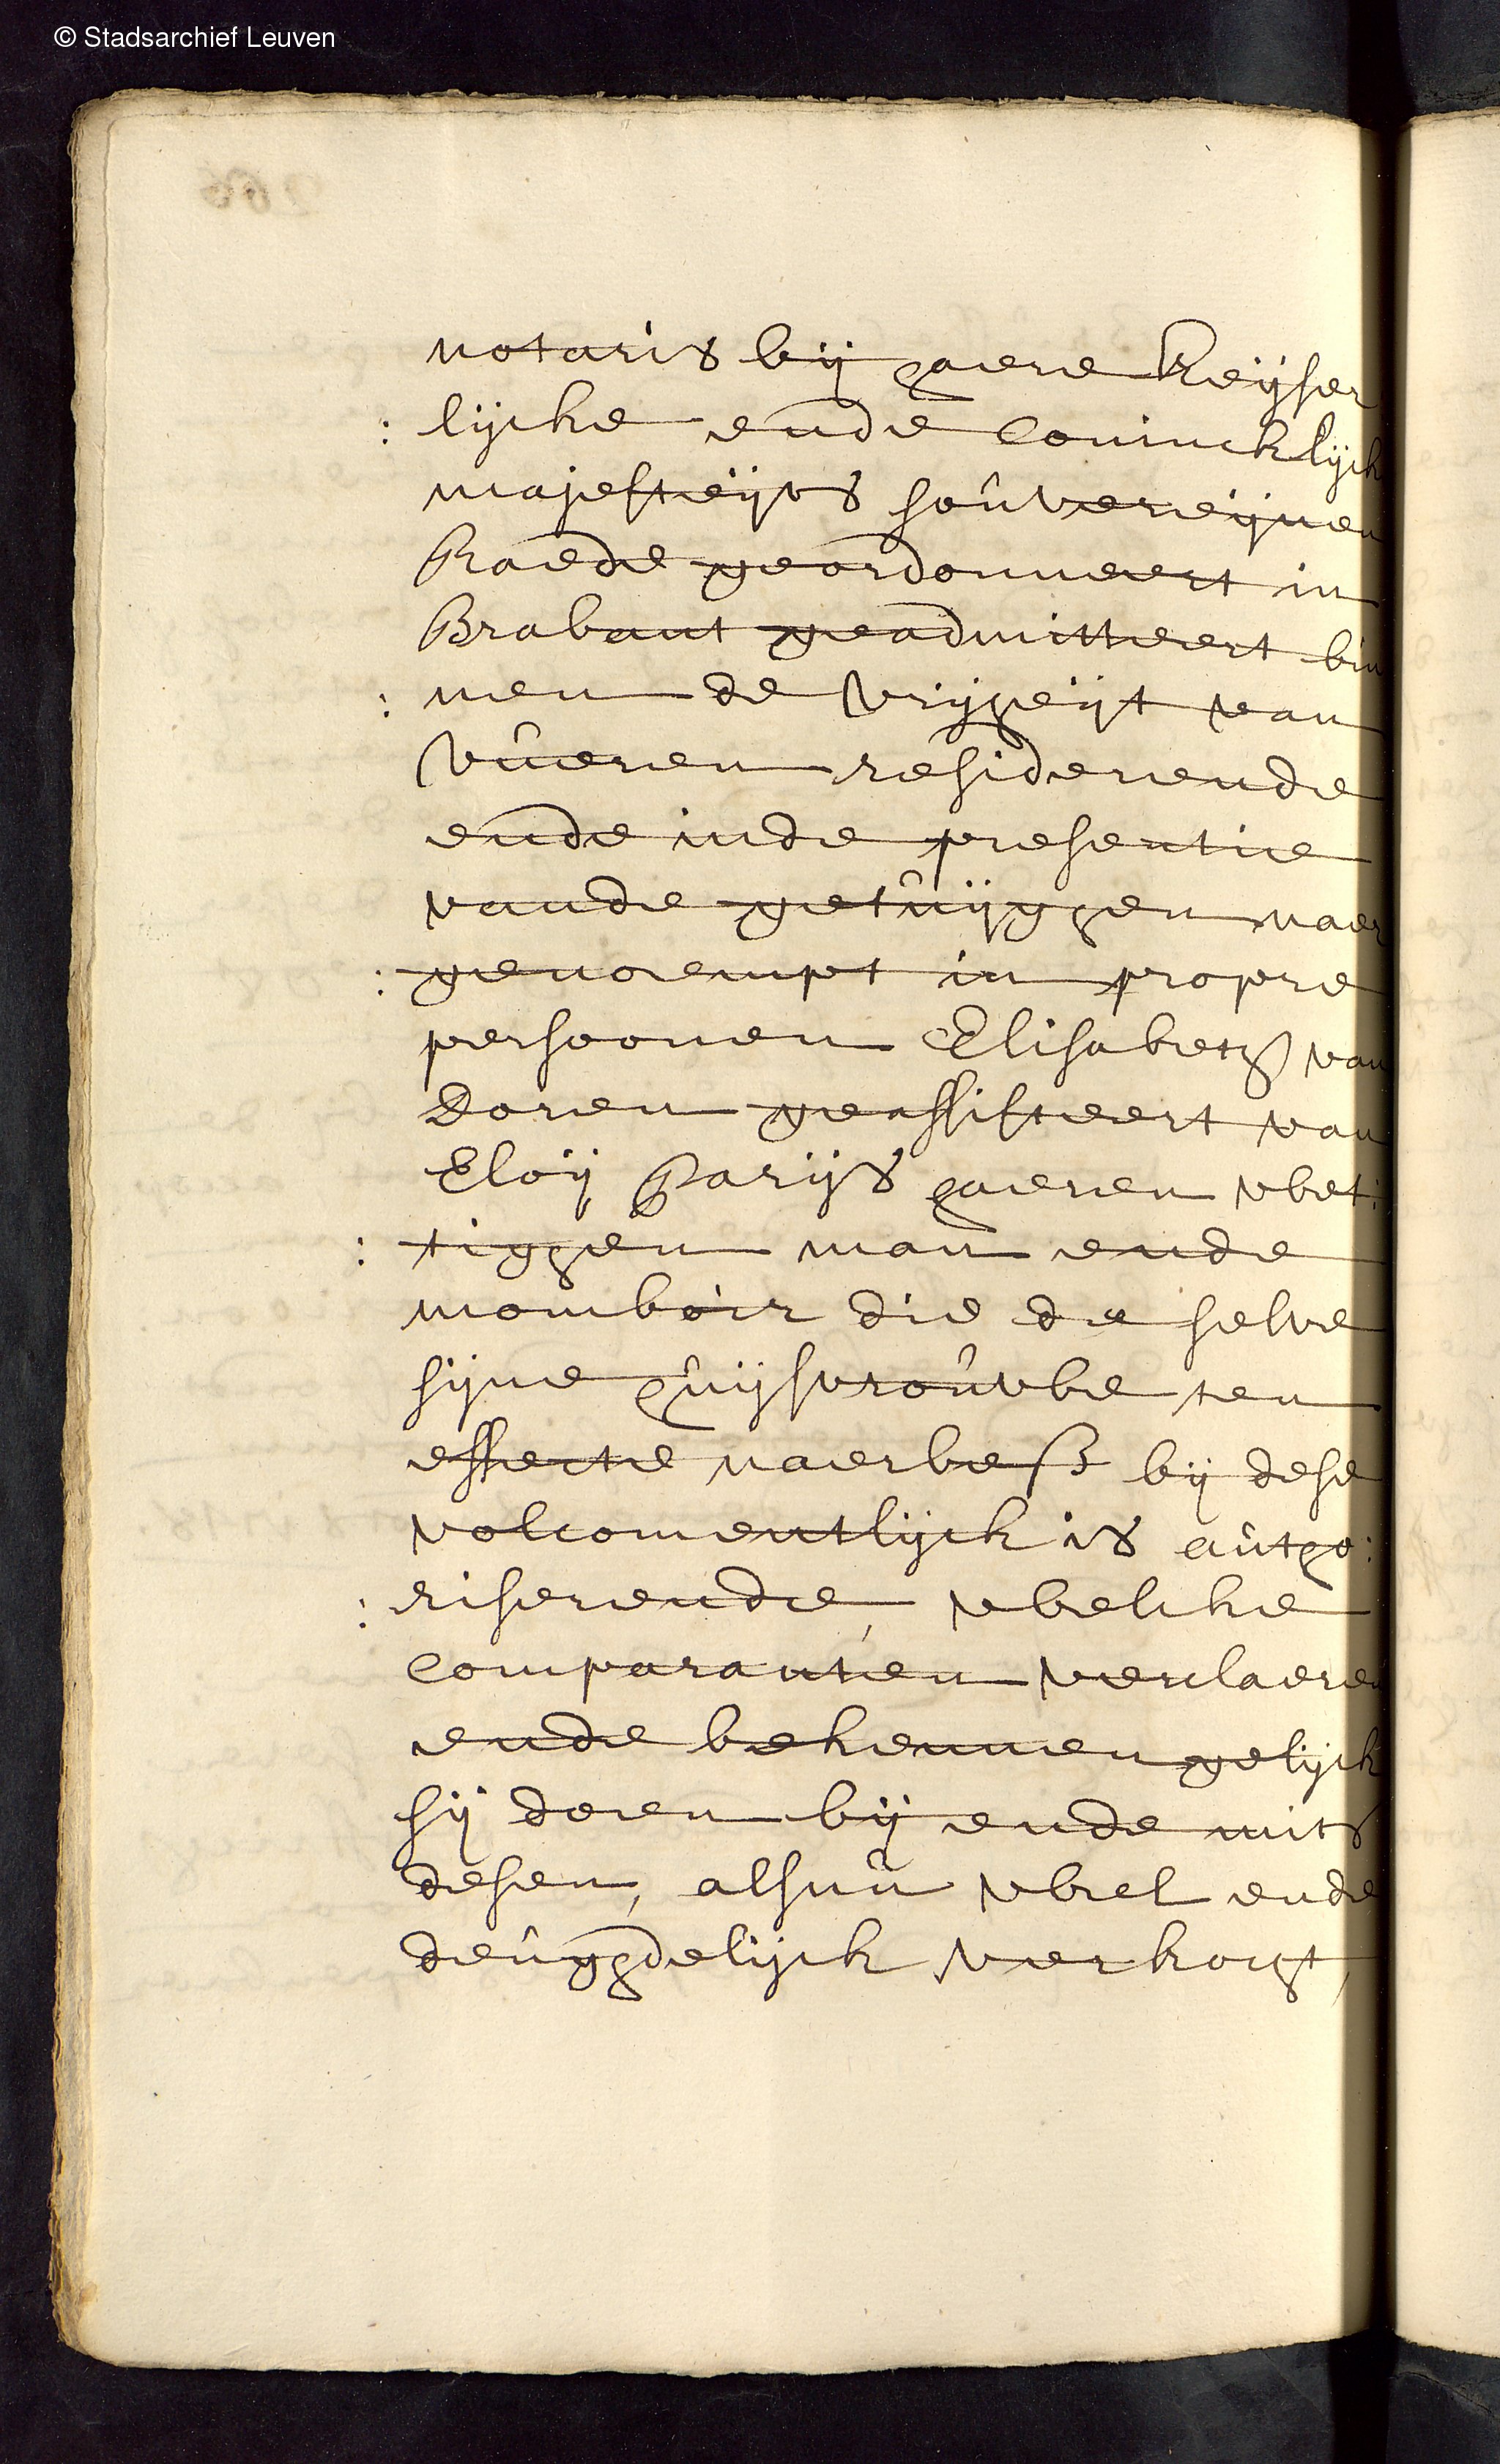 © Stadsarchief Leuven
notaris bij haere Keijser
: lijcke ende Conincklijck
majesteijts souvereijnen
Raede geordonneert in
Brabant geadmitteert bin
: nen de vrijheijt van
Vueren residerende
ende inde presentie
vande getuijghen naer
: genoempt in propre
persoonen Elisabeth van
Doren geassisteert van
Eloij Parijs haeren wet:
: tighen man ende
momboir die de selve
sijne huijsvrouwe ten
effecte naerbess bij dese
volcomentlijck is autho:
: riserende, welcke
Comparanten verclaeren
ende bekennen gelijck
sij doen bij ende mits
desen, alsnu wel ende
deughdelijck verkocht,